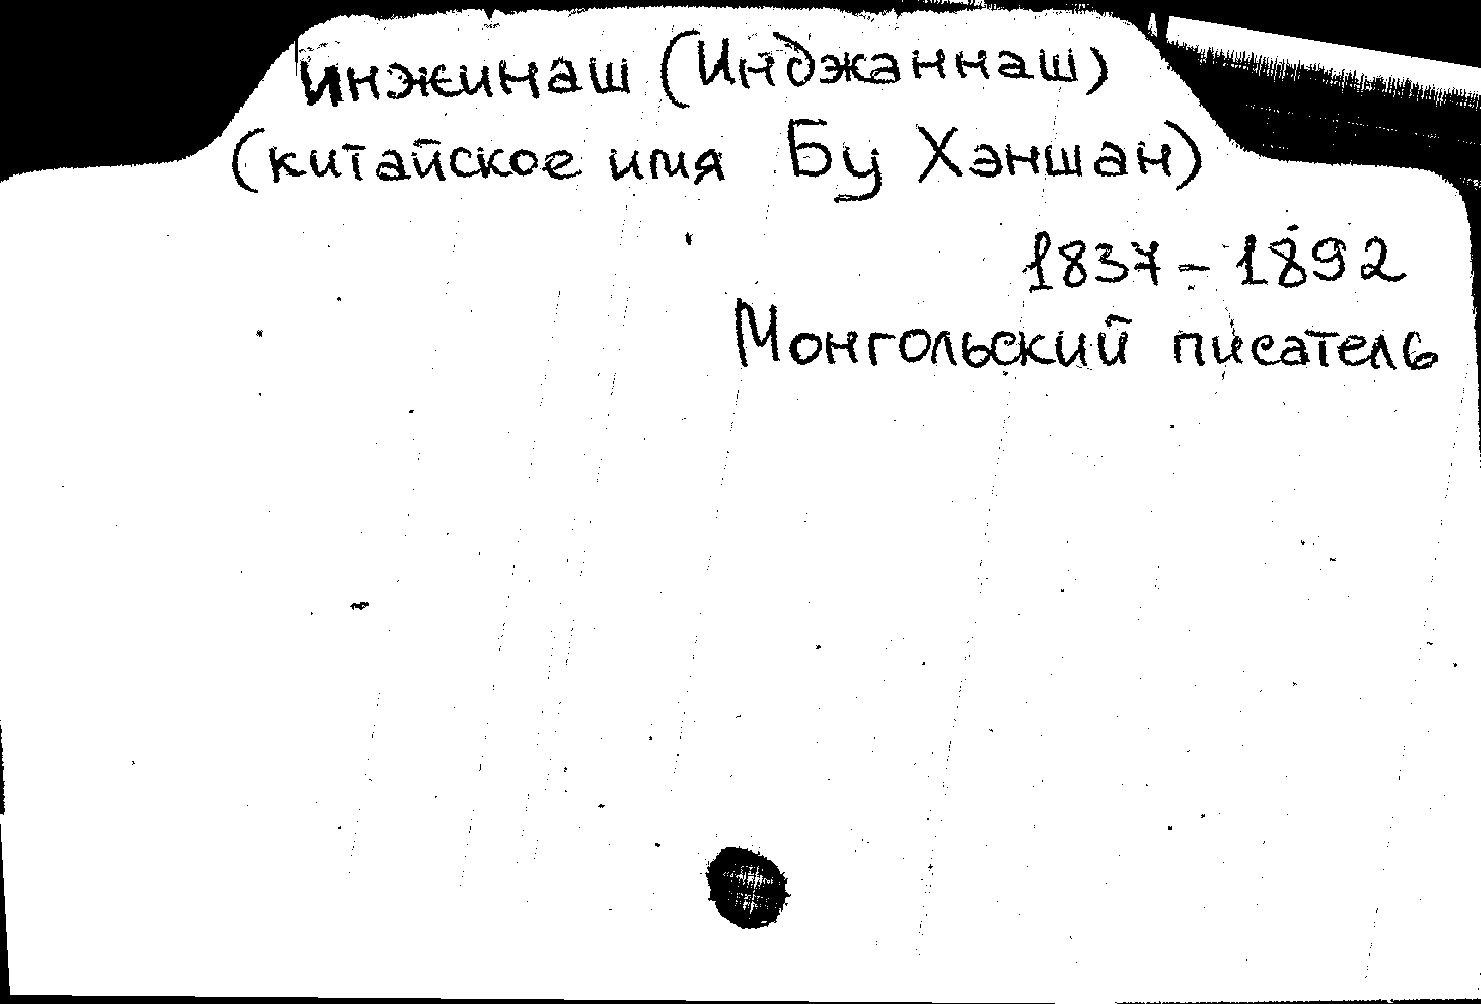 Инжинаш (Инджаннаш)
(китайское имя Бу Хэншан)
1837-1892
Монгольский писатель